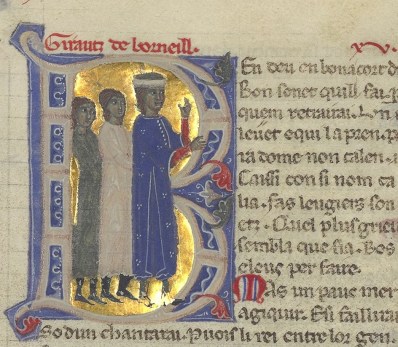 Girautz de borneill. xv.
En deu en bonacort d
Bon sonet quill. fai. p
quem retrairai. Len
leuet equi la pren. p
na dome non calen. a
Caissi con si nom ca
lia. sas leugiers son
etz. Cuel plus griel
sembla que sia. Bos
cleus per faire.
Mas un pauc mer
agiquir. Ei faillirai
So dun chantarai. Puois li rei entre lor gen.